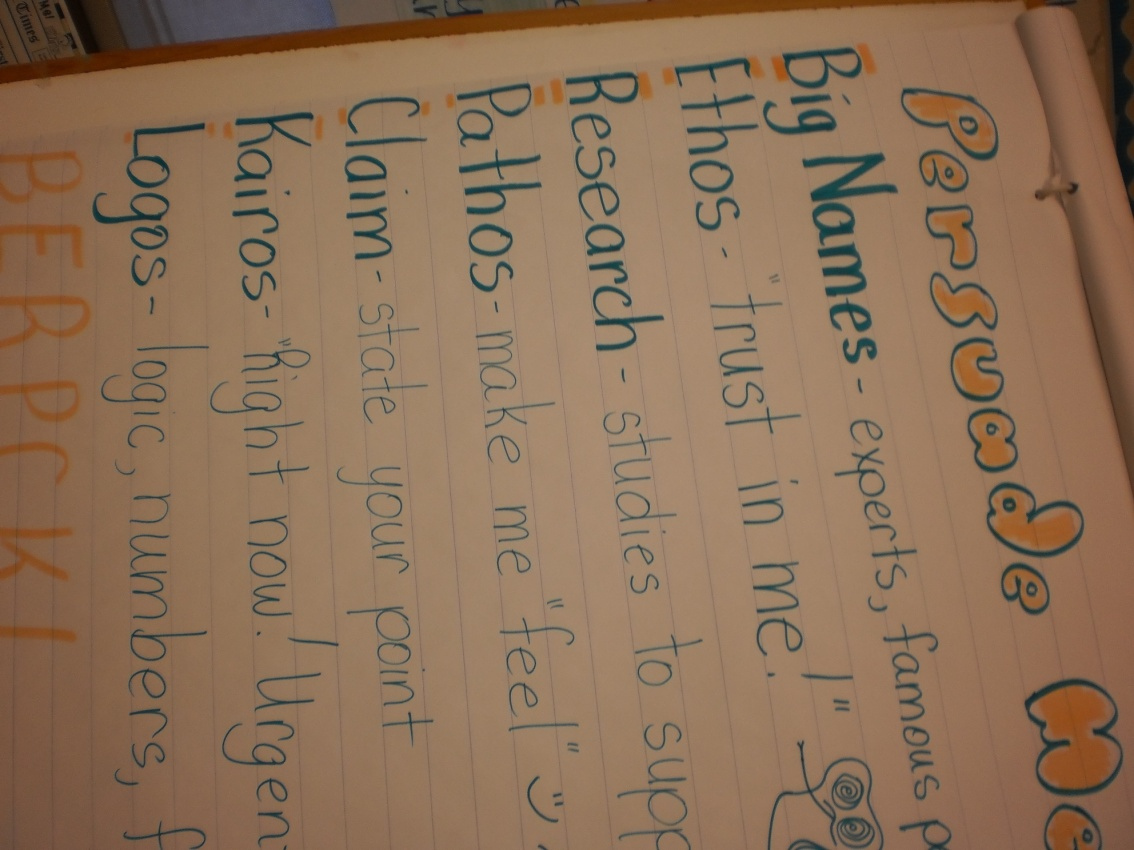 Persuade Me
Big Names - experts, famous p
Ethos - "trust in me!"
Research - studies to supp
Pathos - make me "feel"
Claim - state your point
Kairos - "Right now! Urgen
Logos - logic, numbers, f
BERPCKL
Times